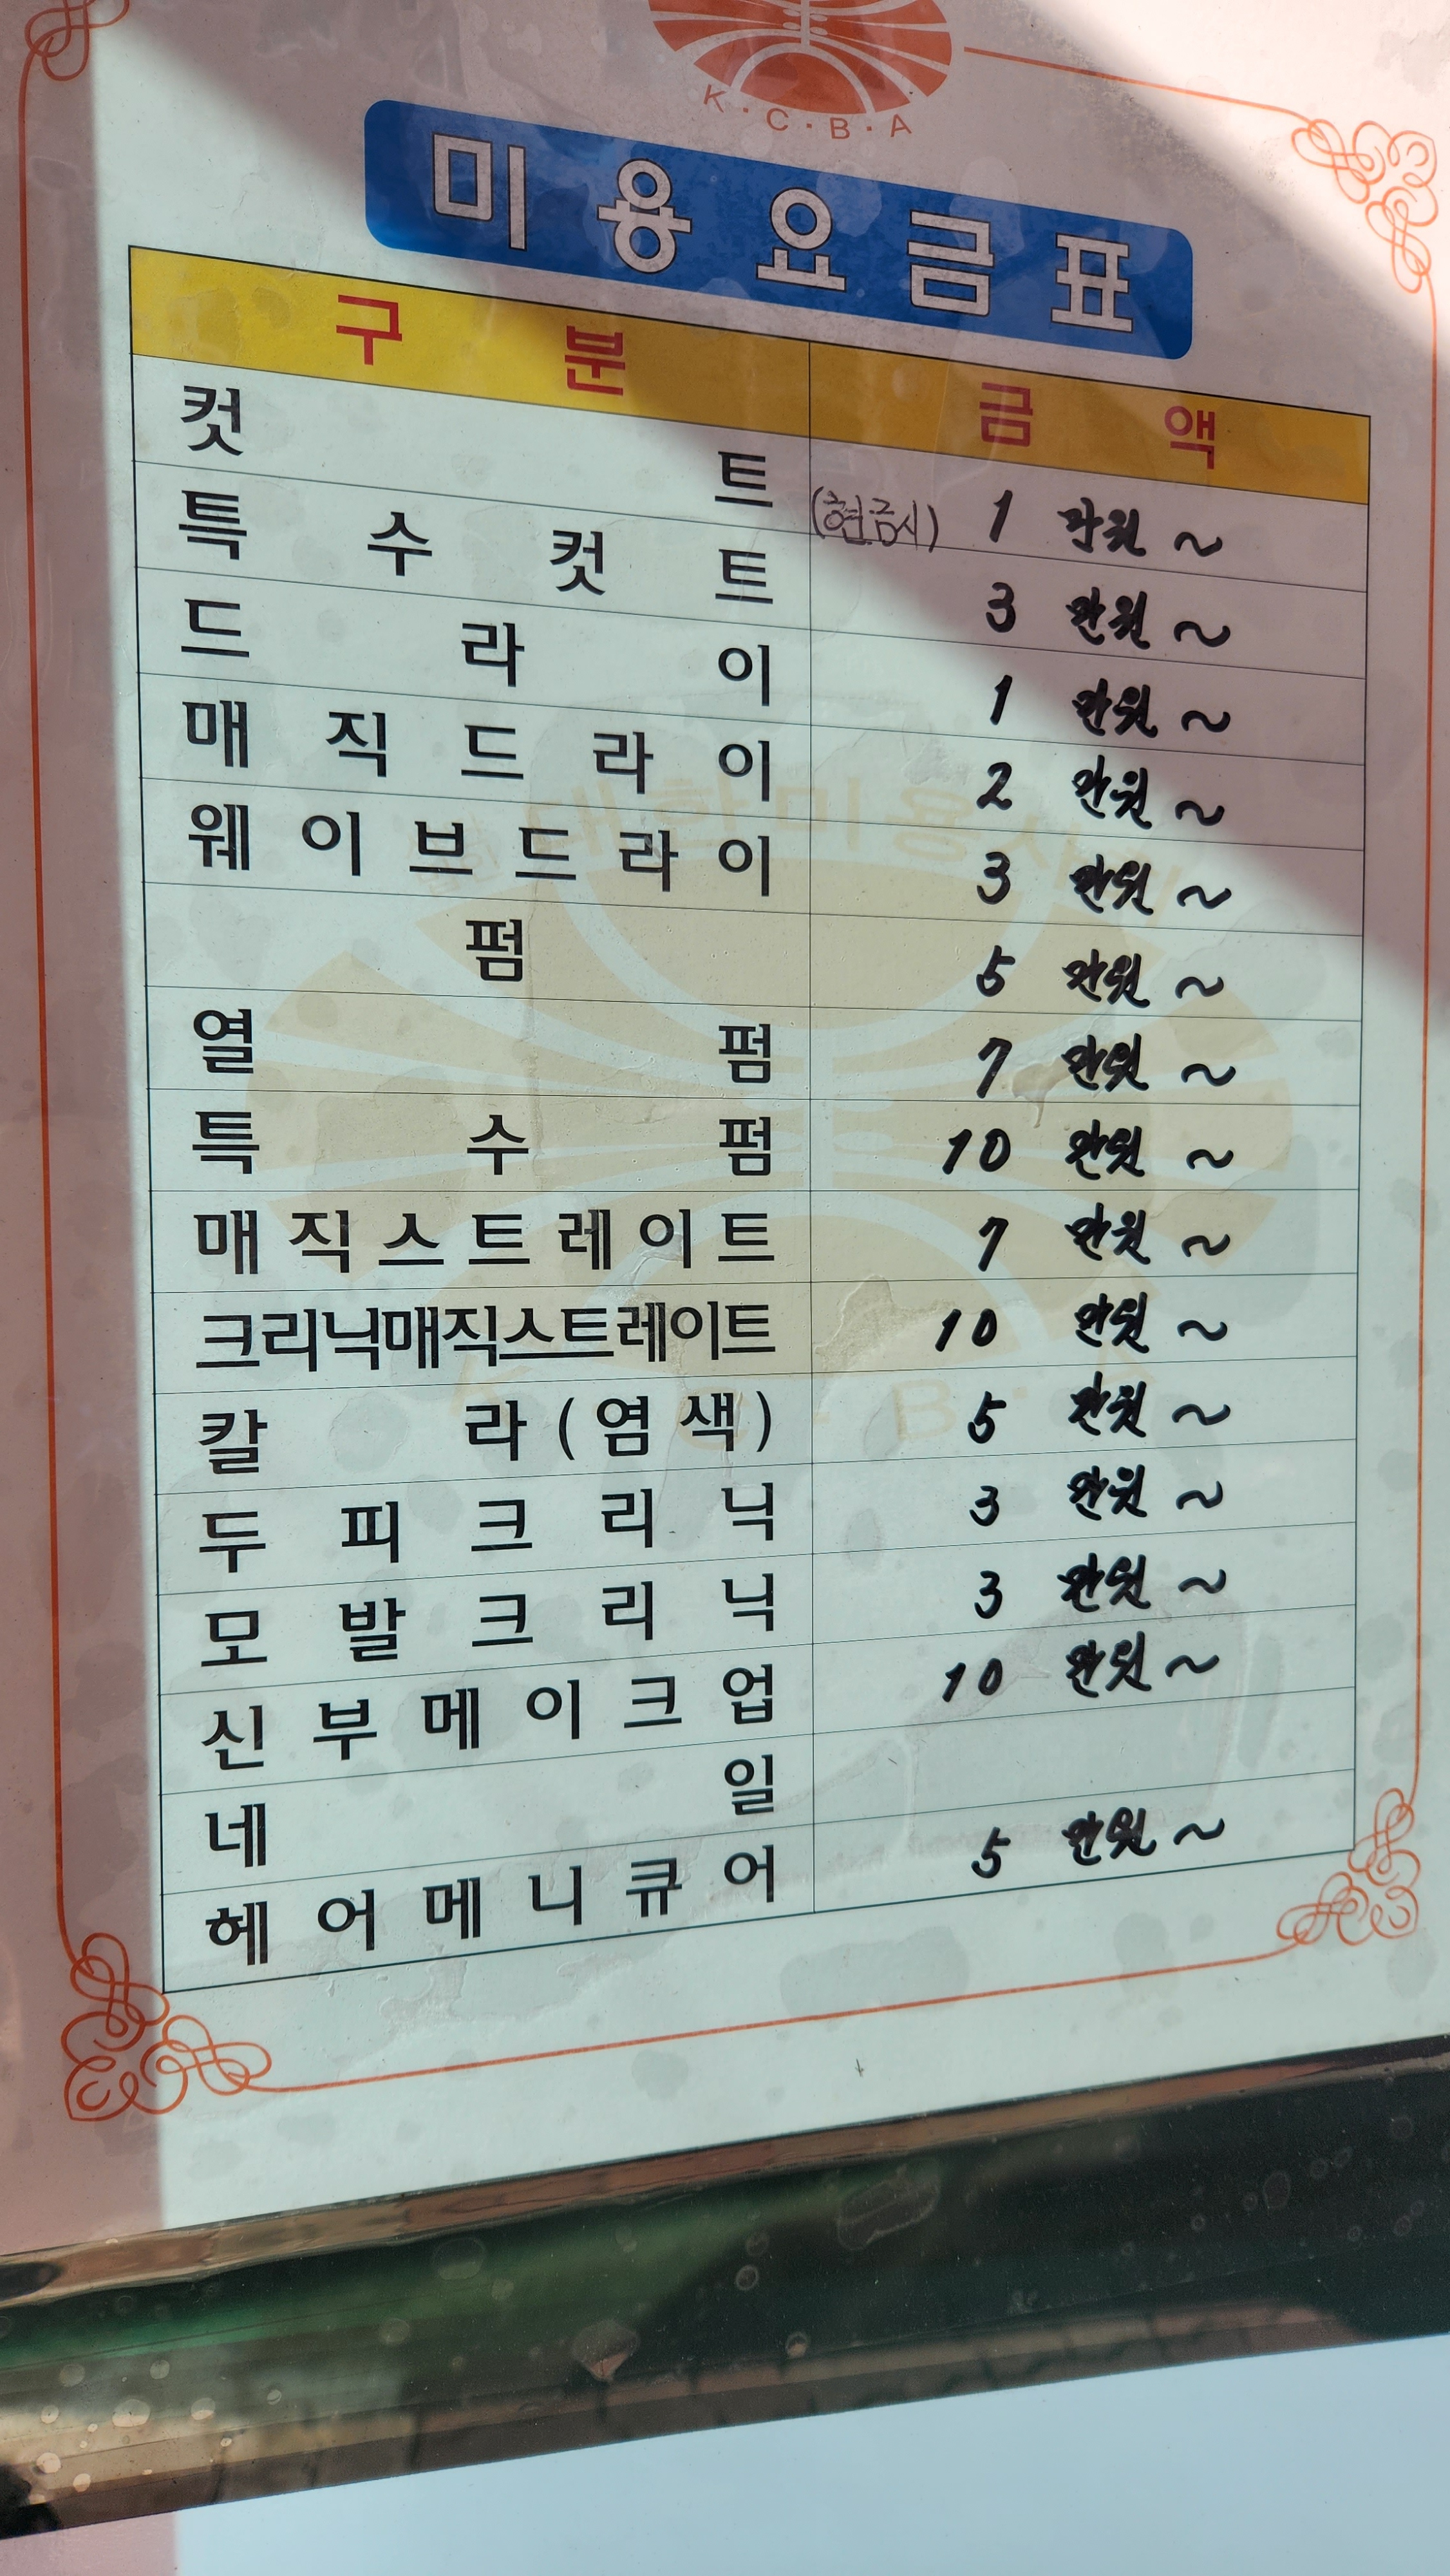 K·C·B·A
미용요금표
구분 금액
컷트 (현금시) 1 만원 ~
특수컷트 3 만원 ~
드라이 1 만원 ~
매직드라이 2 만원 ~
웨이브드라이 3 만원 ~
펌 5 만원 ~
열펌 7 만원 ~
특수펌 10 만원 ~
매직스트레이트 7 만원 ~
크리닉매직스트레이트 10 만원 ~
칼라(염색) 5 만원 ~
두피크리닉 3 만원 ~
모발크리닉 3 만원 ~
신부메이크업 10 만원 ~
네일
헤어메니큐어 5 만원 ~